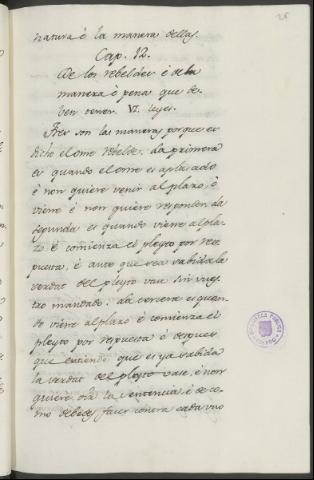 natura é la manera dellas
Cap. 12.
De los rebeldes é de la
manera é pena que de-
ven tener. VI. leyes.
Tres son las maneras porque es
dicho el ome rebelde. La primera
es quando el ome es aplasado
é non quiere venir al plazo, ó
viene é non quiere responder. La
segunda es quando viene al pla-
zo é comienza el pleyto por res
puesta, é ante que sea sabida la
verdat del pleyto vase sin vues-
tro mandado. La tercera es quan-
do viene al plazo é comienza el
pleyto por respuesta é despues
que entiende que es ya sabida
la verdat del pleyto vase, é non
quiere oir la sentencia, é de co-
mo debedes facer contra cada uno